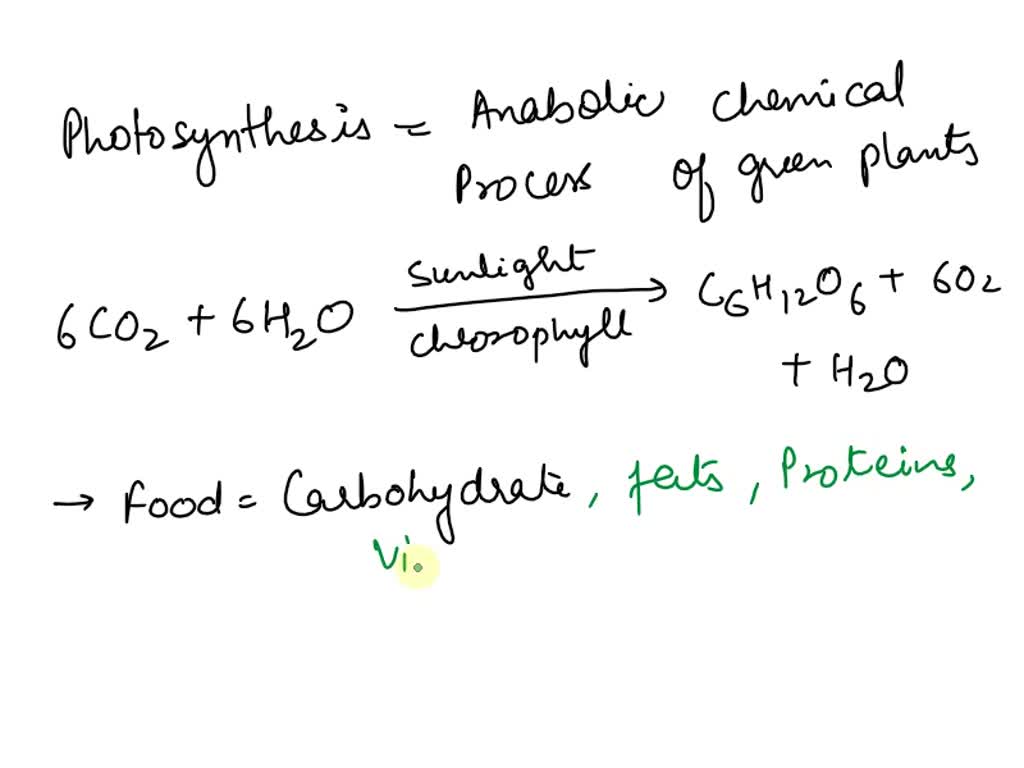 Photosynthesis = Anabolic chemical
Process of green plants
6CO₂ + 6H₂O sunlight chlorophyll → C₆H₁₂O₆ + 6O₂
+ H₂O
→ Food = Carbohydrate, fats, Proteins,
Vi